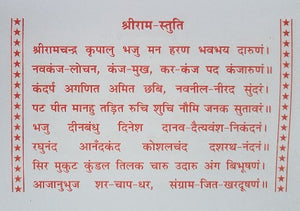 श्रीराम-स्तुति
श्रीरामचन्द्र कृपालु भजु मन हरण भवभय दारुणं।
नवकंज-लोचन, कंज-मुख, कर-कंज पद कंजारुणं॥
कंदर्प अगणित अमित छबि, नवनील-नीरद सुंदरं।
पट पीत मानहु तड़ित रुचि शुचि नौमि जनक सुतावरं॥
भजु दीनबंधु दिनेश दानव-दैत्यवंश-निकंदनं।
रघुनंद आनँदकंद कोशलचंद दशरथ-नंदनं॥
सिर मुकुट कुंडल तिलक चारु उदारु अंग बिभूषणं।
आजानुभुज शर-चाप-धर, संग्राम-जित-खरदूषणं॥